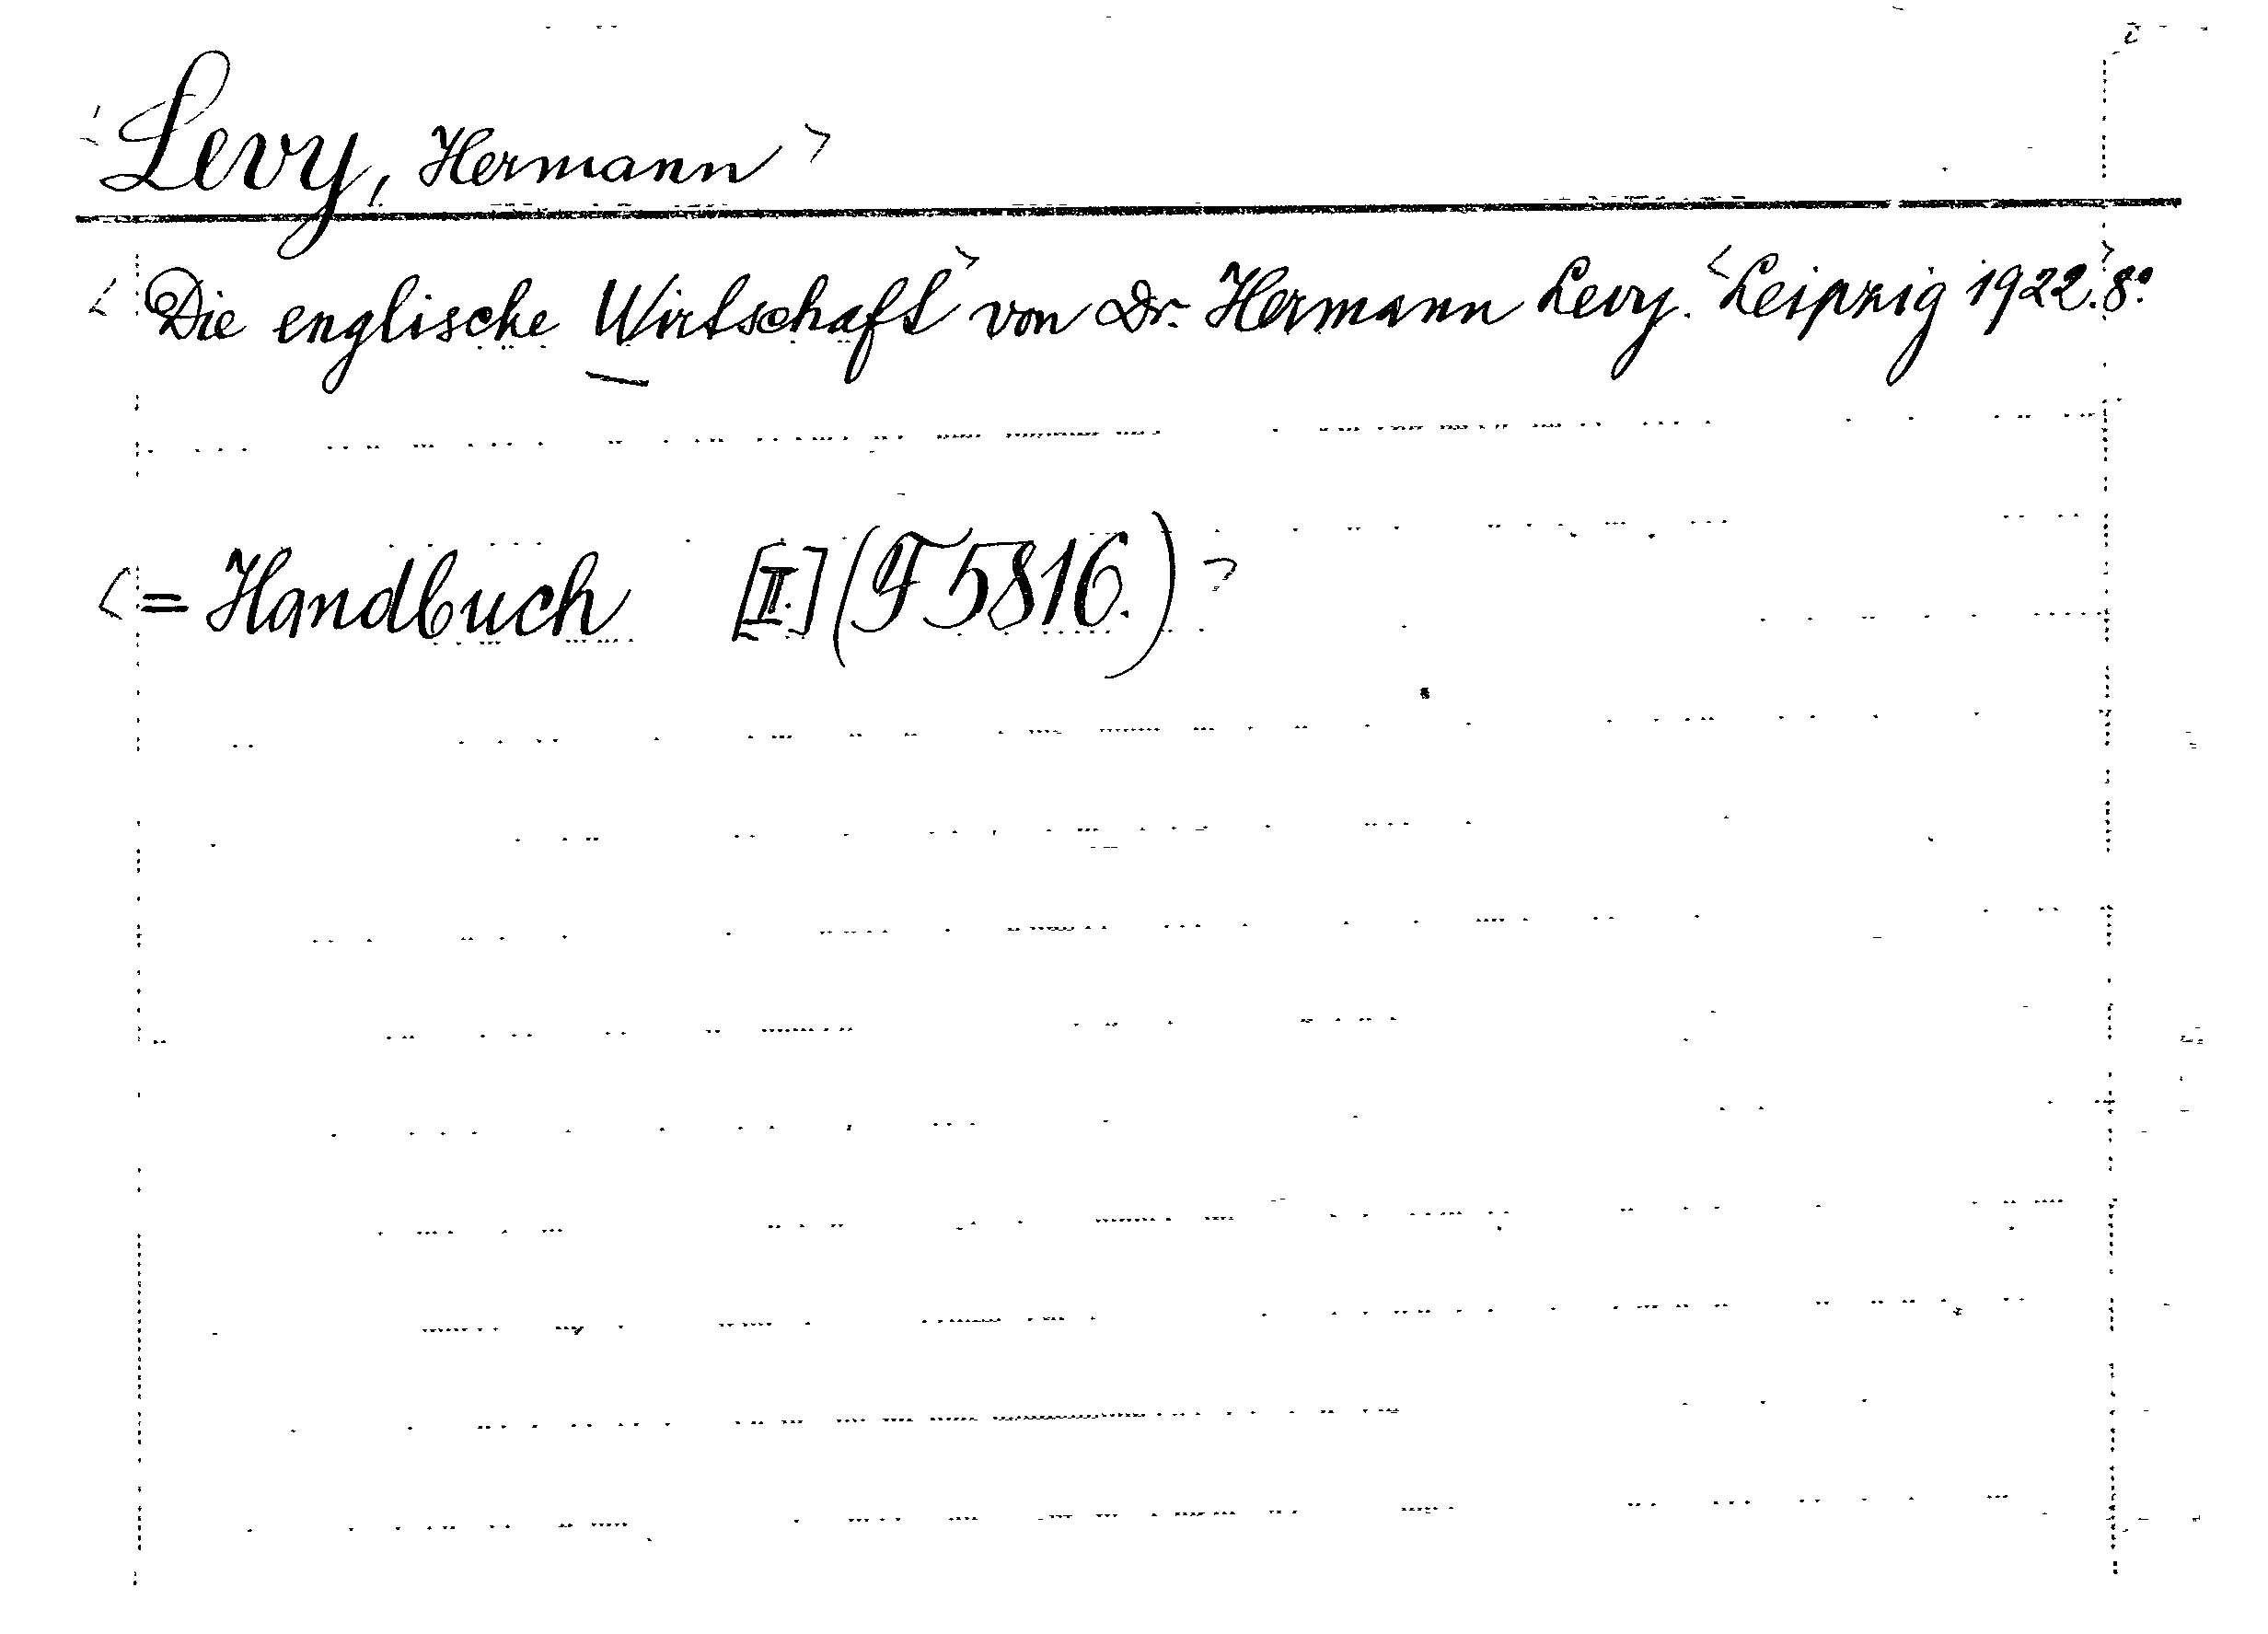 <Levy, Hermann>
<Die englische Wirtschaft> von Dr. Hermann Levy. <Leipzig 1922.> 8°
<= Handbuch [II.] (F 5816.)>